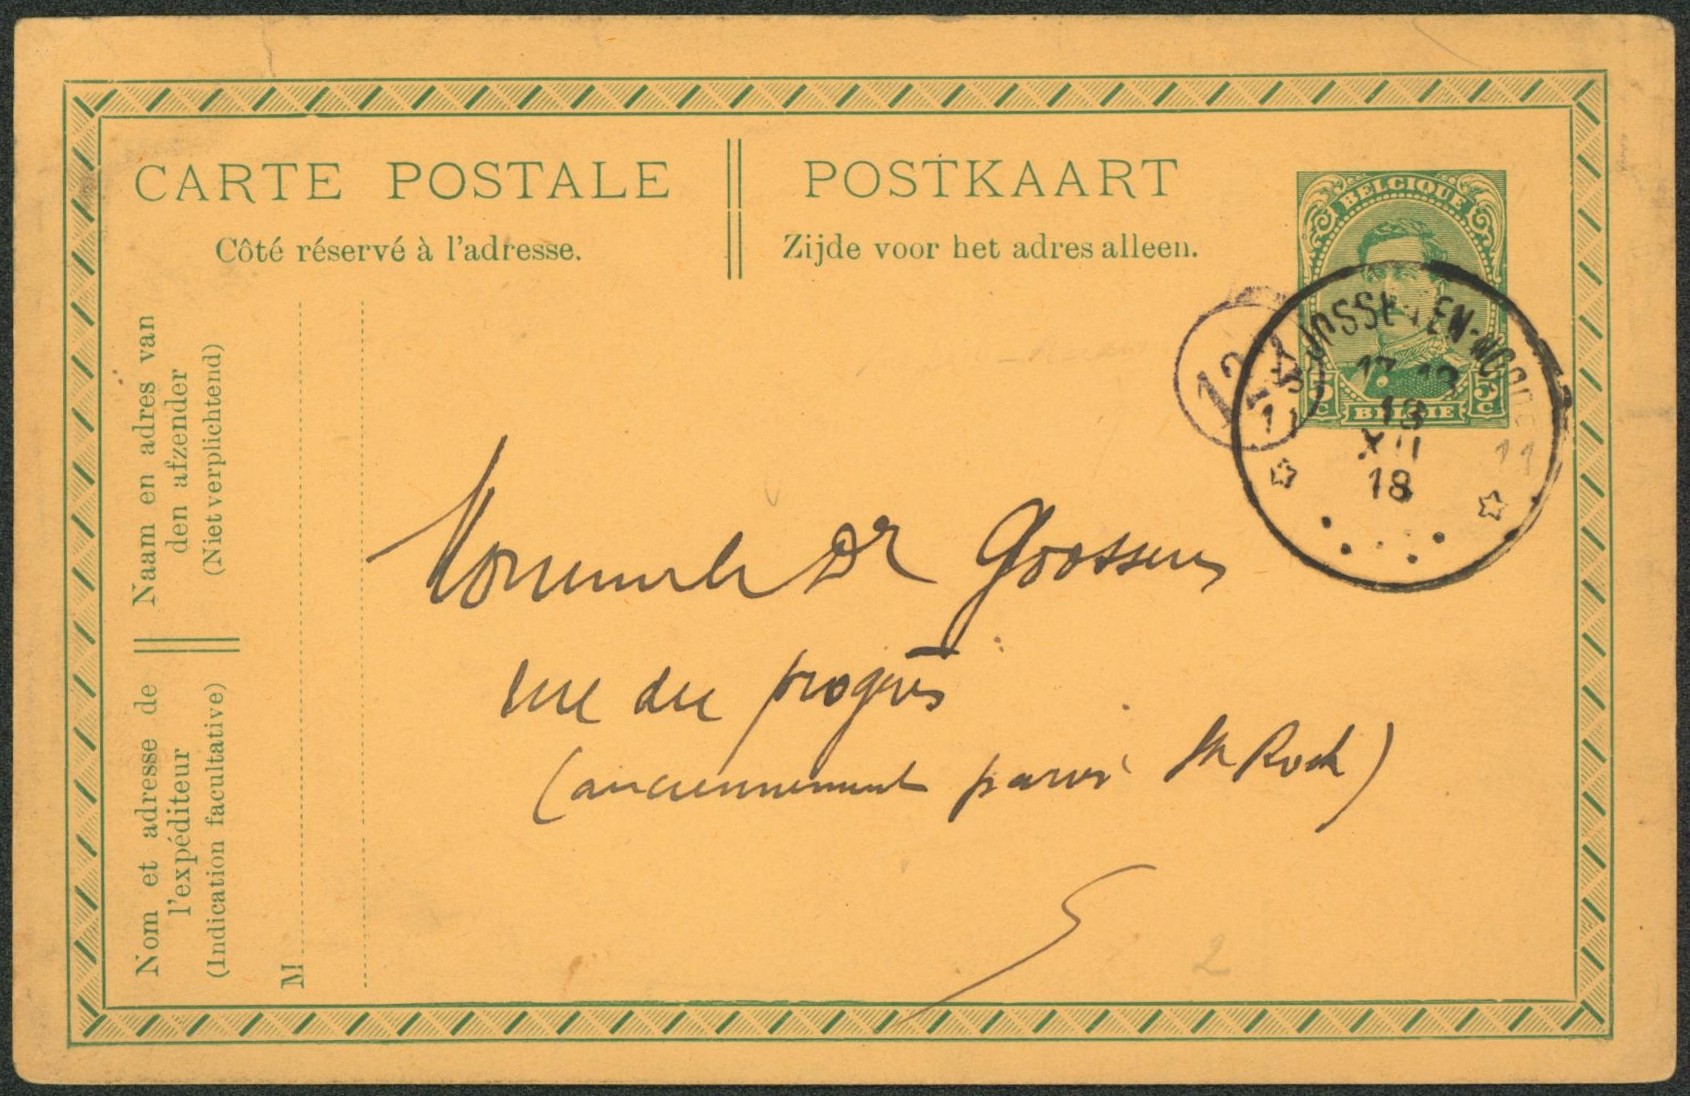 CARTE POSTALE
Côté réservé à l'adresse.
POSTKAART
Zijde voor het adres alleen.
BELGIQUE
5 C. BELGIË 5 C.
12
18
XII
18
11
Naam en adres van
den afzender
(Niet verplichtend)
Nom et adresse de
l'expéditeur
(Indication facultative)
M
Dr Goossens
rue du progrès
(anciennement parvis St Roch)
2